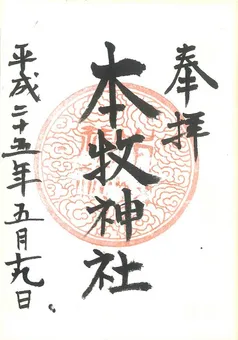 奉拝
本牧神社
平成二十五年五月十九日